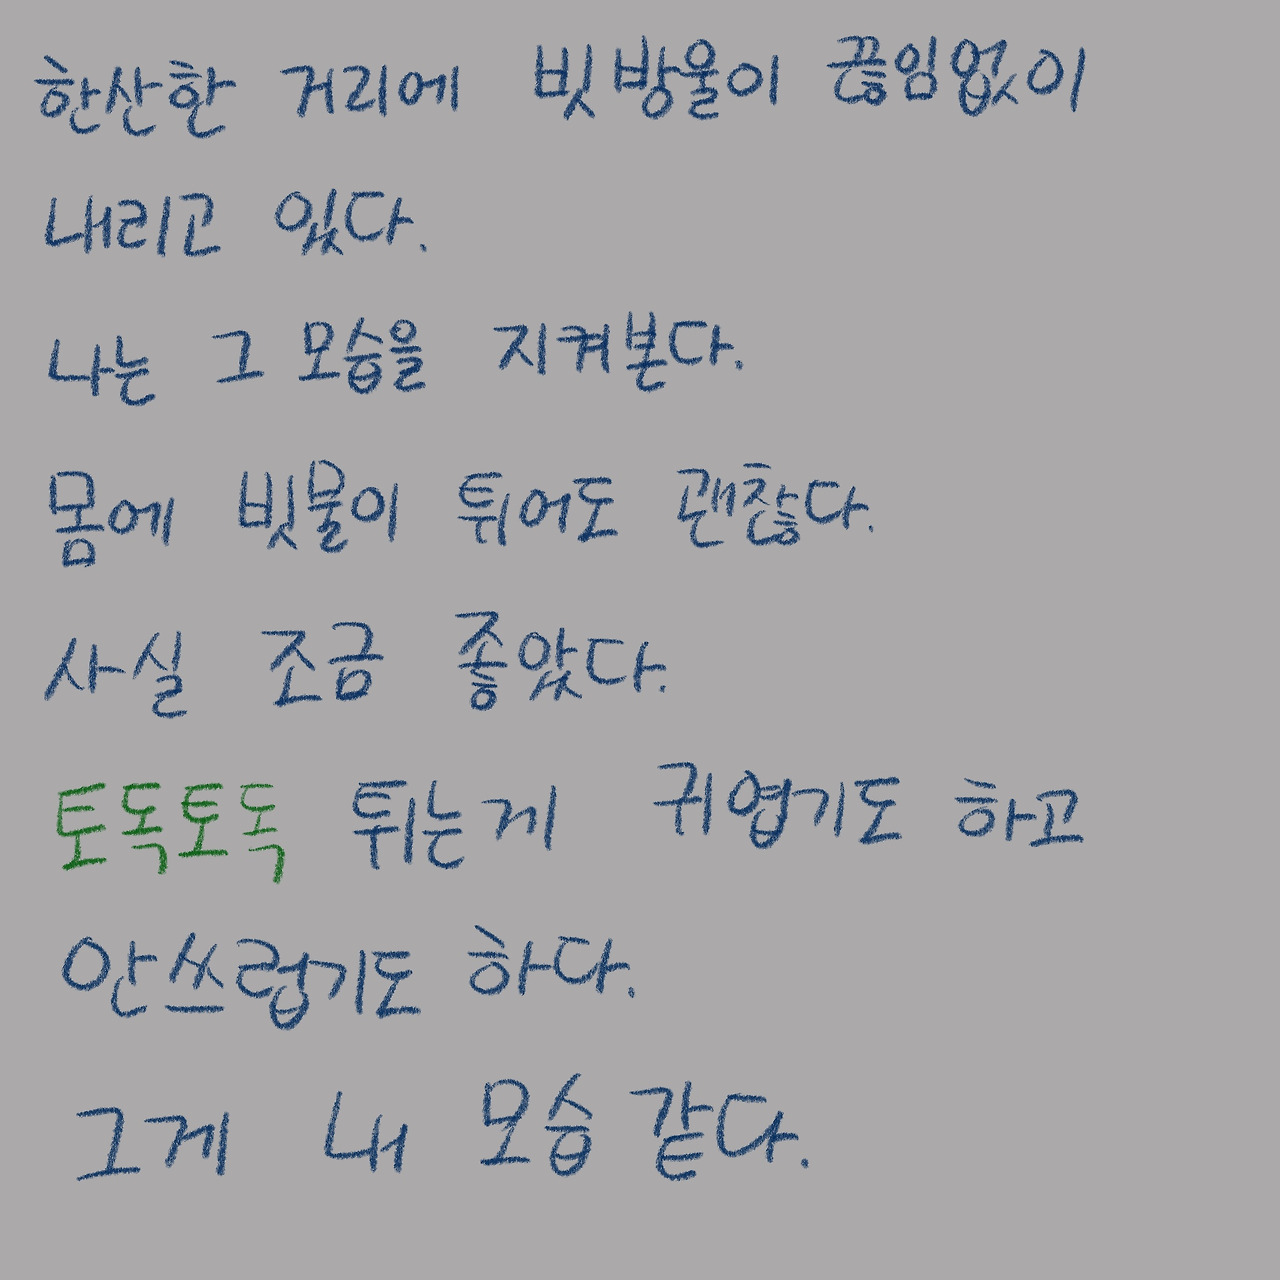 한산한 거리에 빗방울이 끊임없이
내리고 있다.
나는 그 모습을 지켜본다.
몸에 빗물이 튀어도 괜찮다.
사실 조금 좋았다.
토독토독 튀는게 귀엽기도 하고
안쓰럽기도 하다.
그게 내 모습 같다.